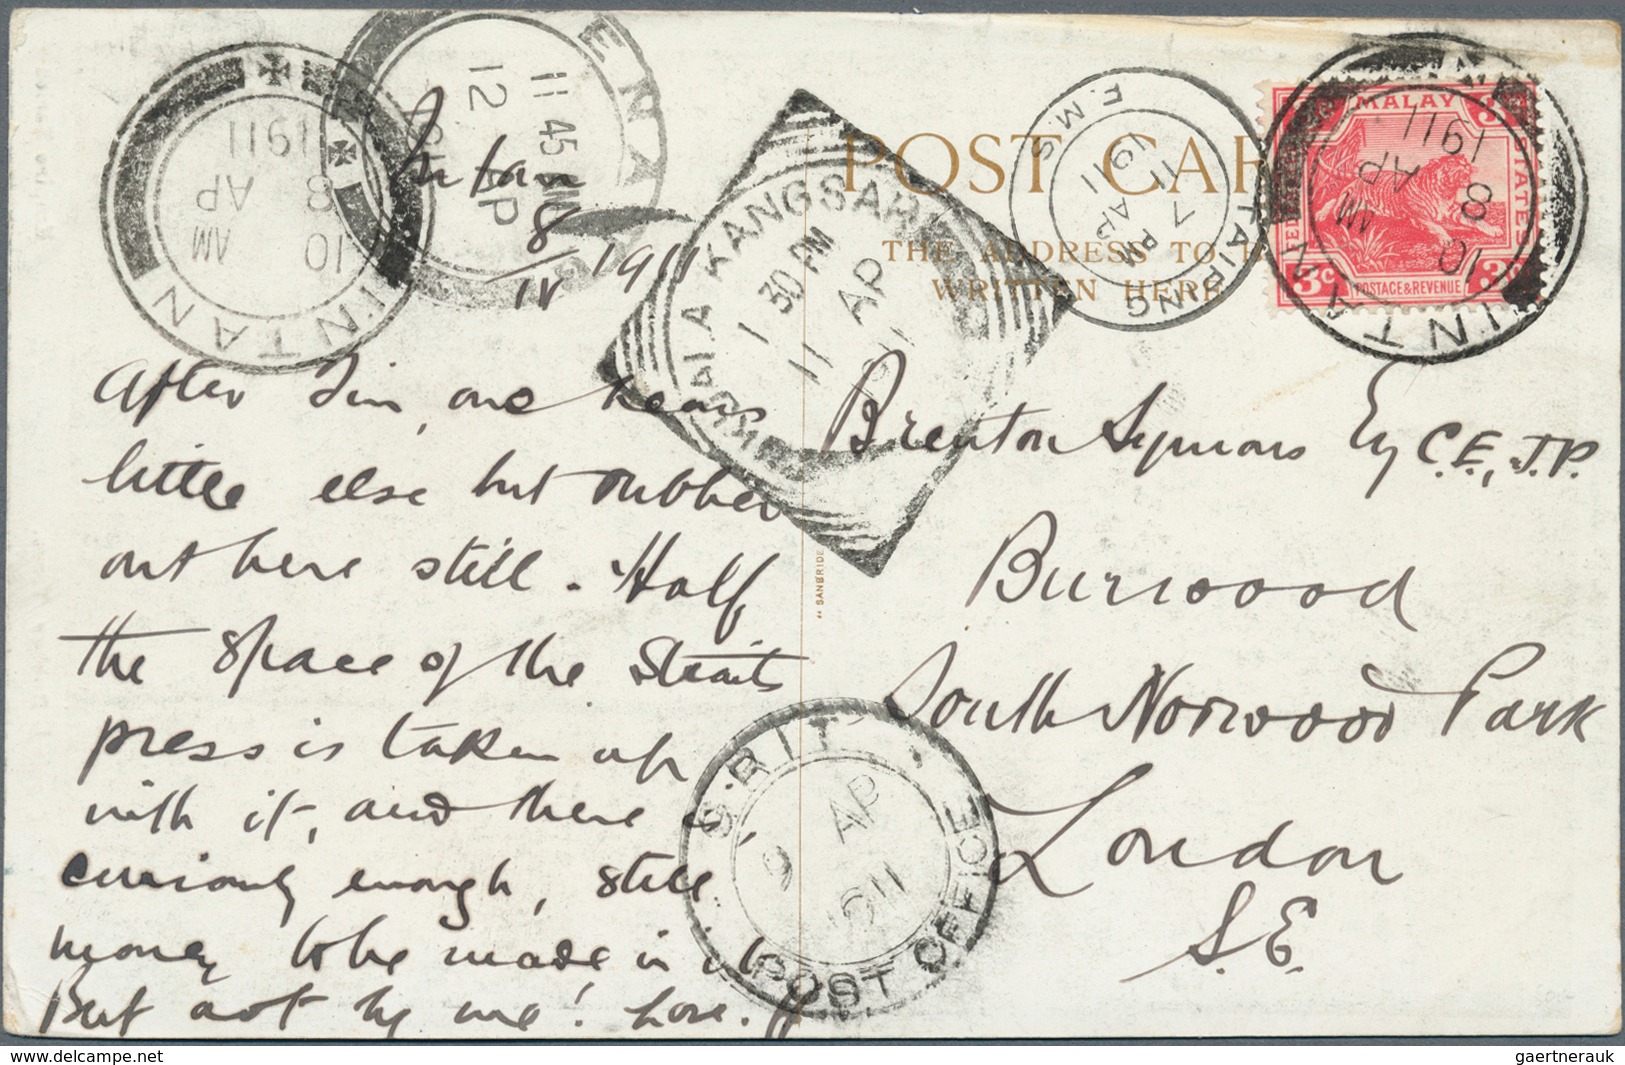 INTAN
10 AM
8 AP
1911
ENA
11 45 AM
12 AP
Intan
8/IV 1911
KUALA KANGSAR
1 30 PM
11 AP
TAIPING
F.M.S.
7 PM
11 AP
1911
INTAN
10 AM
8 AP
1911
MALAY
STATES
3c 3c
POSTAGE & REVENUE
POST CAR
THE ADDRESS TO B
WRITTEN HERE
After Tin, one hears
little else but rubber
out here still. Half
the space of the Straits
press is taken up
with it, and there is,
curiously enough, still
money to be made in it
But not by me! Love.
"SANBRIDE
Brenton Symons Esq C.E., J.P.
Burwood
South Norwood Park
London
S.E.
G.RIT
POST OFFICE
9 AP
1911
gaertnerauk
www.delcampe.net